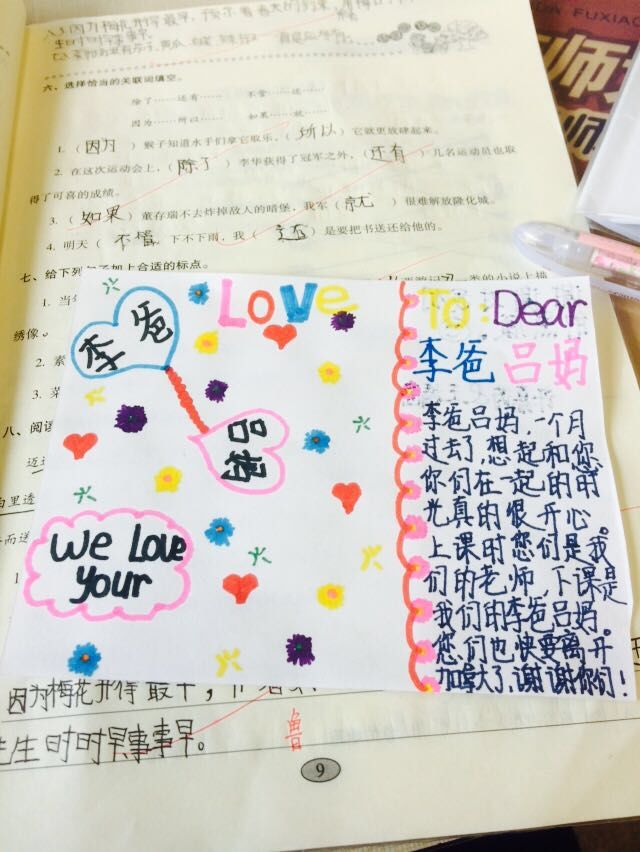 六、选择恰当的关联词填空。
除了……还有…… 不管……还……
因为……所以…… 如果……就……
1. (因为) 猴子知道水手们拿它取乐，(所以) 它就更放肆起来。
2. 在这次运动会上，(除了) 李华获得了冠军之外，(还有) 几名运动员也取
得了可喜的成绩。
3. (如果) 董存瑞不去炸掉敌人的暗堡，我军 (就) 很难解放隆化城。
4. 明天 (不管) 下不下雨，我 (还) 是要把书送还给他的。
七、给下列句子加上合适的标点。
1. 当
绣像
2. 素
3. 菜
八、阅读
LOVE
李爸
吕妈
We Love
Your
To: Dear
李爸 吕妈
李爸吕妈，一个月
过去了想起和您
你们在一起的时
光真的很开心。
上课时您们是我
们的老师，下课是
我们的李爸吕妈。
您们也快要离开
加拿大了，谢谢你们！
因为梅花开得最早，
先生时时早事事早。
鲁
9
DA FUXIAO
师